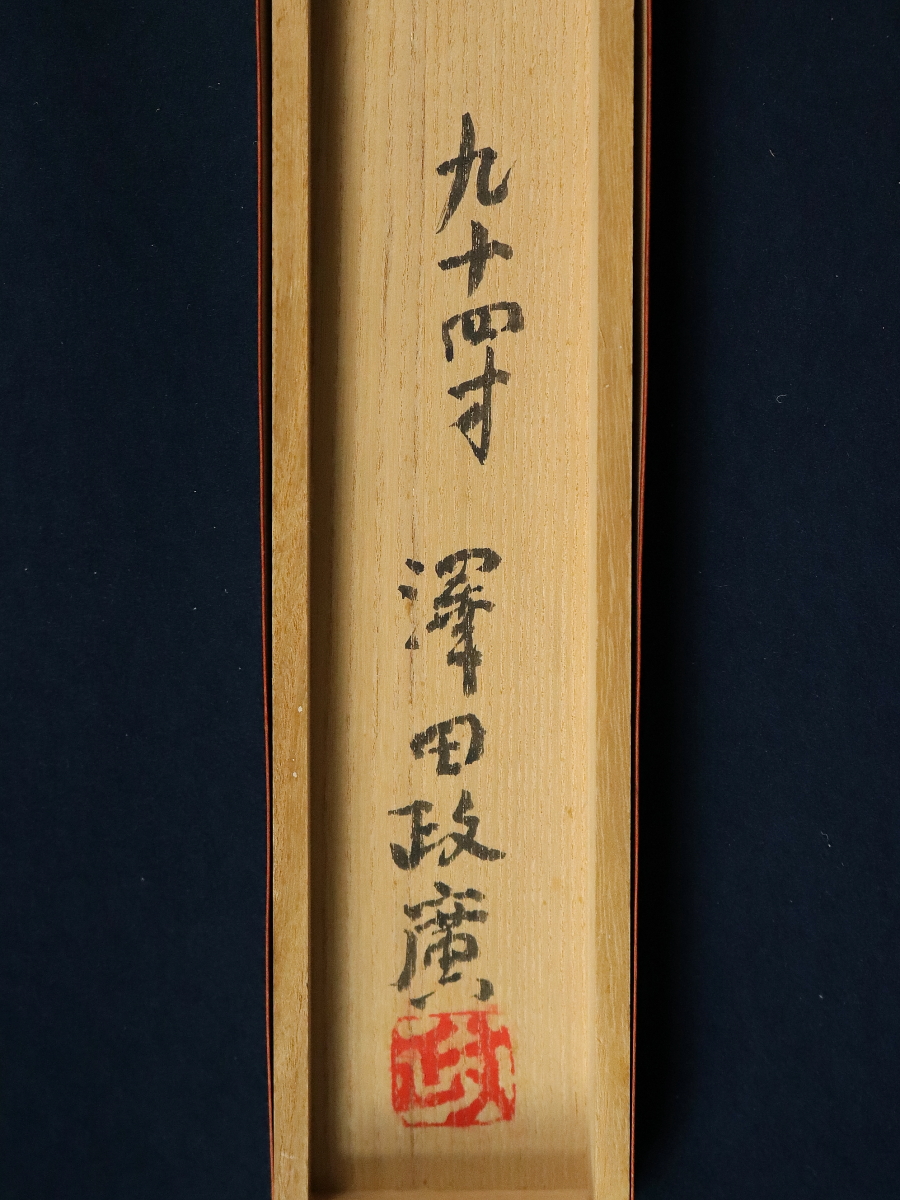 九十四才
澤田政廣
政